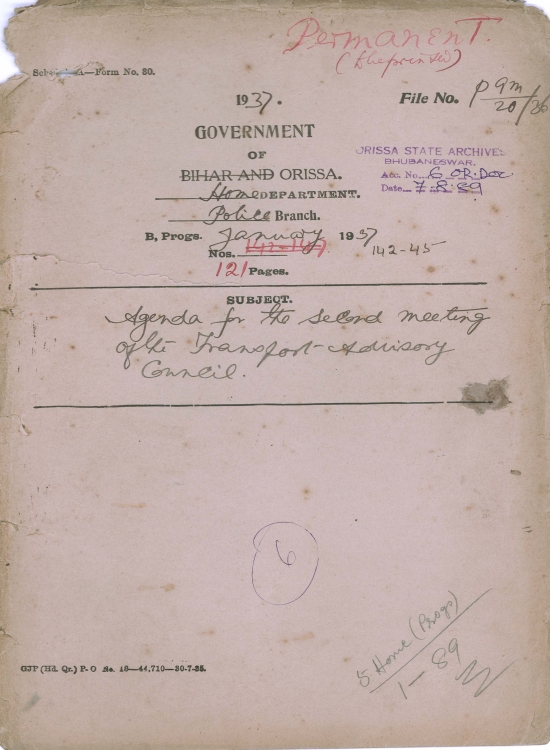 Permanent
(Blueprinted)
A—Form No. 30.
1937.
File No. P 9m
20/36
GOVERNMENT
OF
BIHAR AND ORISSA.
Home DEPARTMENT.
Police Branch.
ORISSA STATE ARCHIVES
BHUBANESWAR.
Acc. No. 6 OR. Doc
Date 7-8-89
B, Progs. January 1937
Nos. 142-147 142-45
121 Pages.
SUBJECT.
Agenda for the second meeting
of the Transport-Advisory
Council.
6
5 Home (Progs)
1-89
GJP (Hd. Qr.) P-O No. 18—44,710—30-7-35.